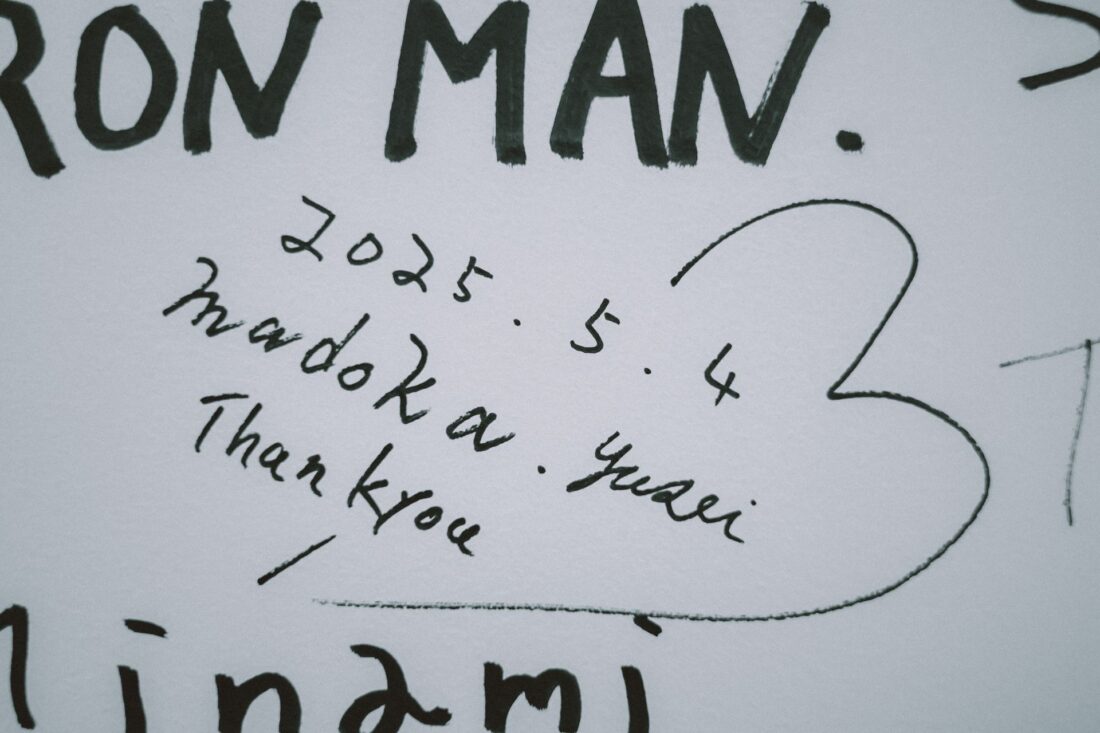 RON MAN.
2025.5.4
madoka.yusei
Thank you
inami